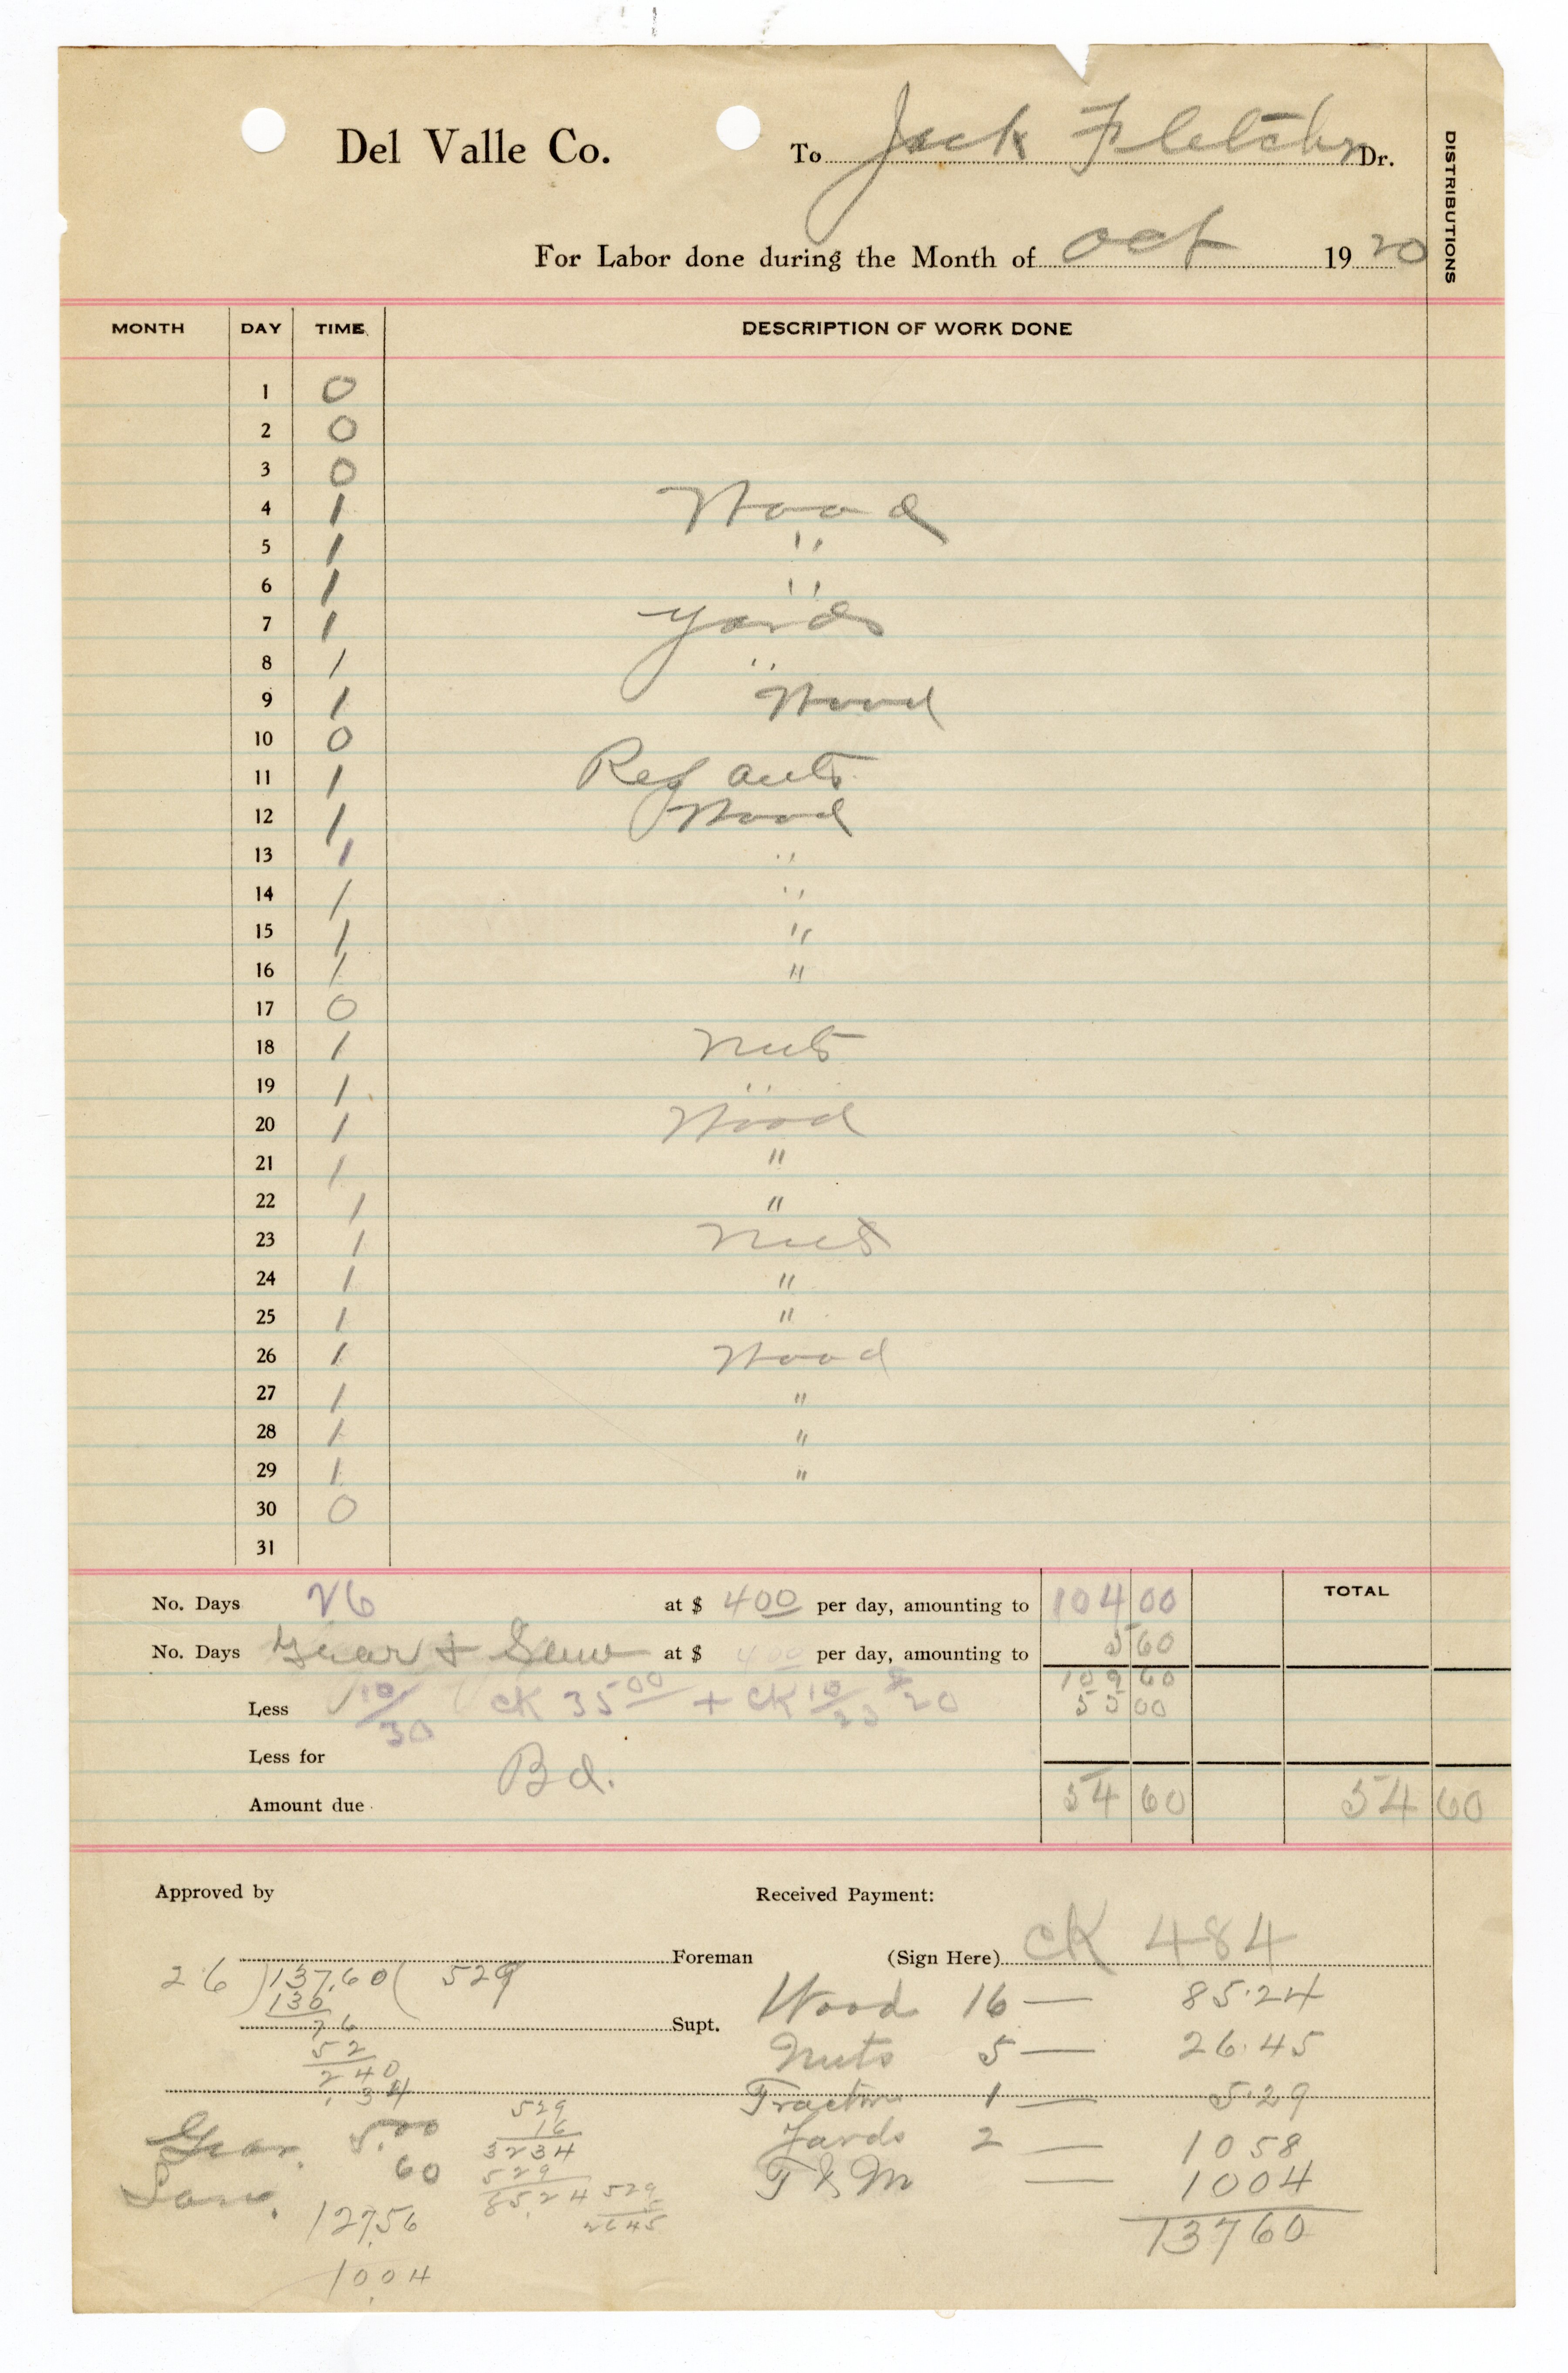 Del Valle Co. To Jack Fletcher Dr.
For Labor done during the Month of Oct 1920
DISTRIBUTIONS
MONTH DAY TIME DESCRIPTION OF WORK DONE
1 0
2 0
3 0
4 1 Wood
5 1 "
6 1 "
7 1 Yards
8 1 "
9 1 Wood
10 0
11 1 Rep auto
12 1 Wood
13 1 "
14 1 "
15 1 "
16 1 "
17 0
18 1 Nuts
19 1 "
20 1 Wood
21 1 "
22 1 "
23 1 Nuts
24 1 "
25 1 "
26 1 Wood
27 1 "
28 1 "
29 1 "
30 0
31
No. Days 26 at $ 4 00 per day, amounting to 104 00 TOTAL
No. Days Gear + at $ 4 00 per day, amounting to 5 60
109 60
Less 10/30 CK 35 00 + CK 10/23 $20 55 00
Less for Bd.
Amount due 54 60 54 60
Approved by Received Payment:
Foreman (Sign Here) CK 484
26 ) 137.60 ( 529
130
76
52
240
234
Supt.
Wood 16 — 85.24
Nuts 5 — 26.45
Tractor 1 — 5.29
Yards 2 — 10 58
T & M — 10 04
137 60
Gear. 5.00
60
127.56
10.04
529
16
3234
529
85.24
529
5
2645